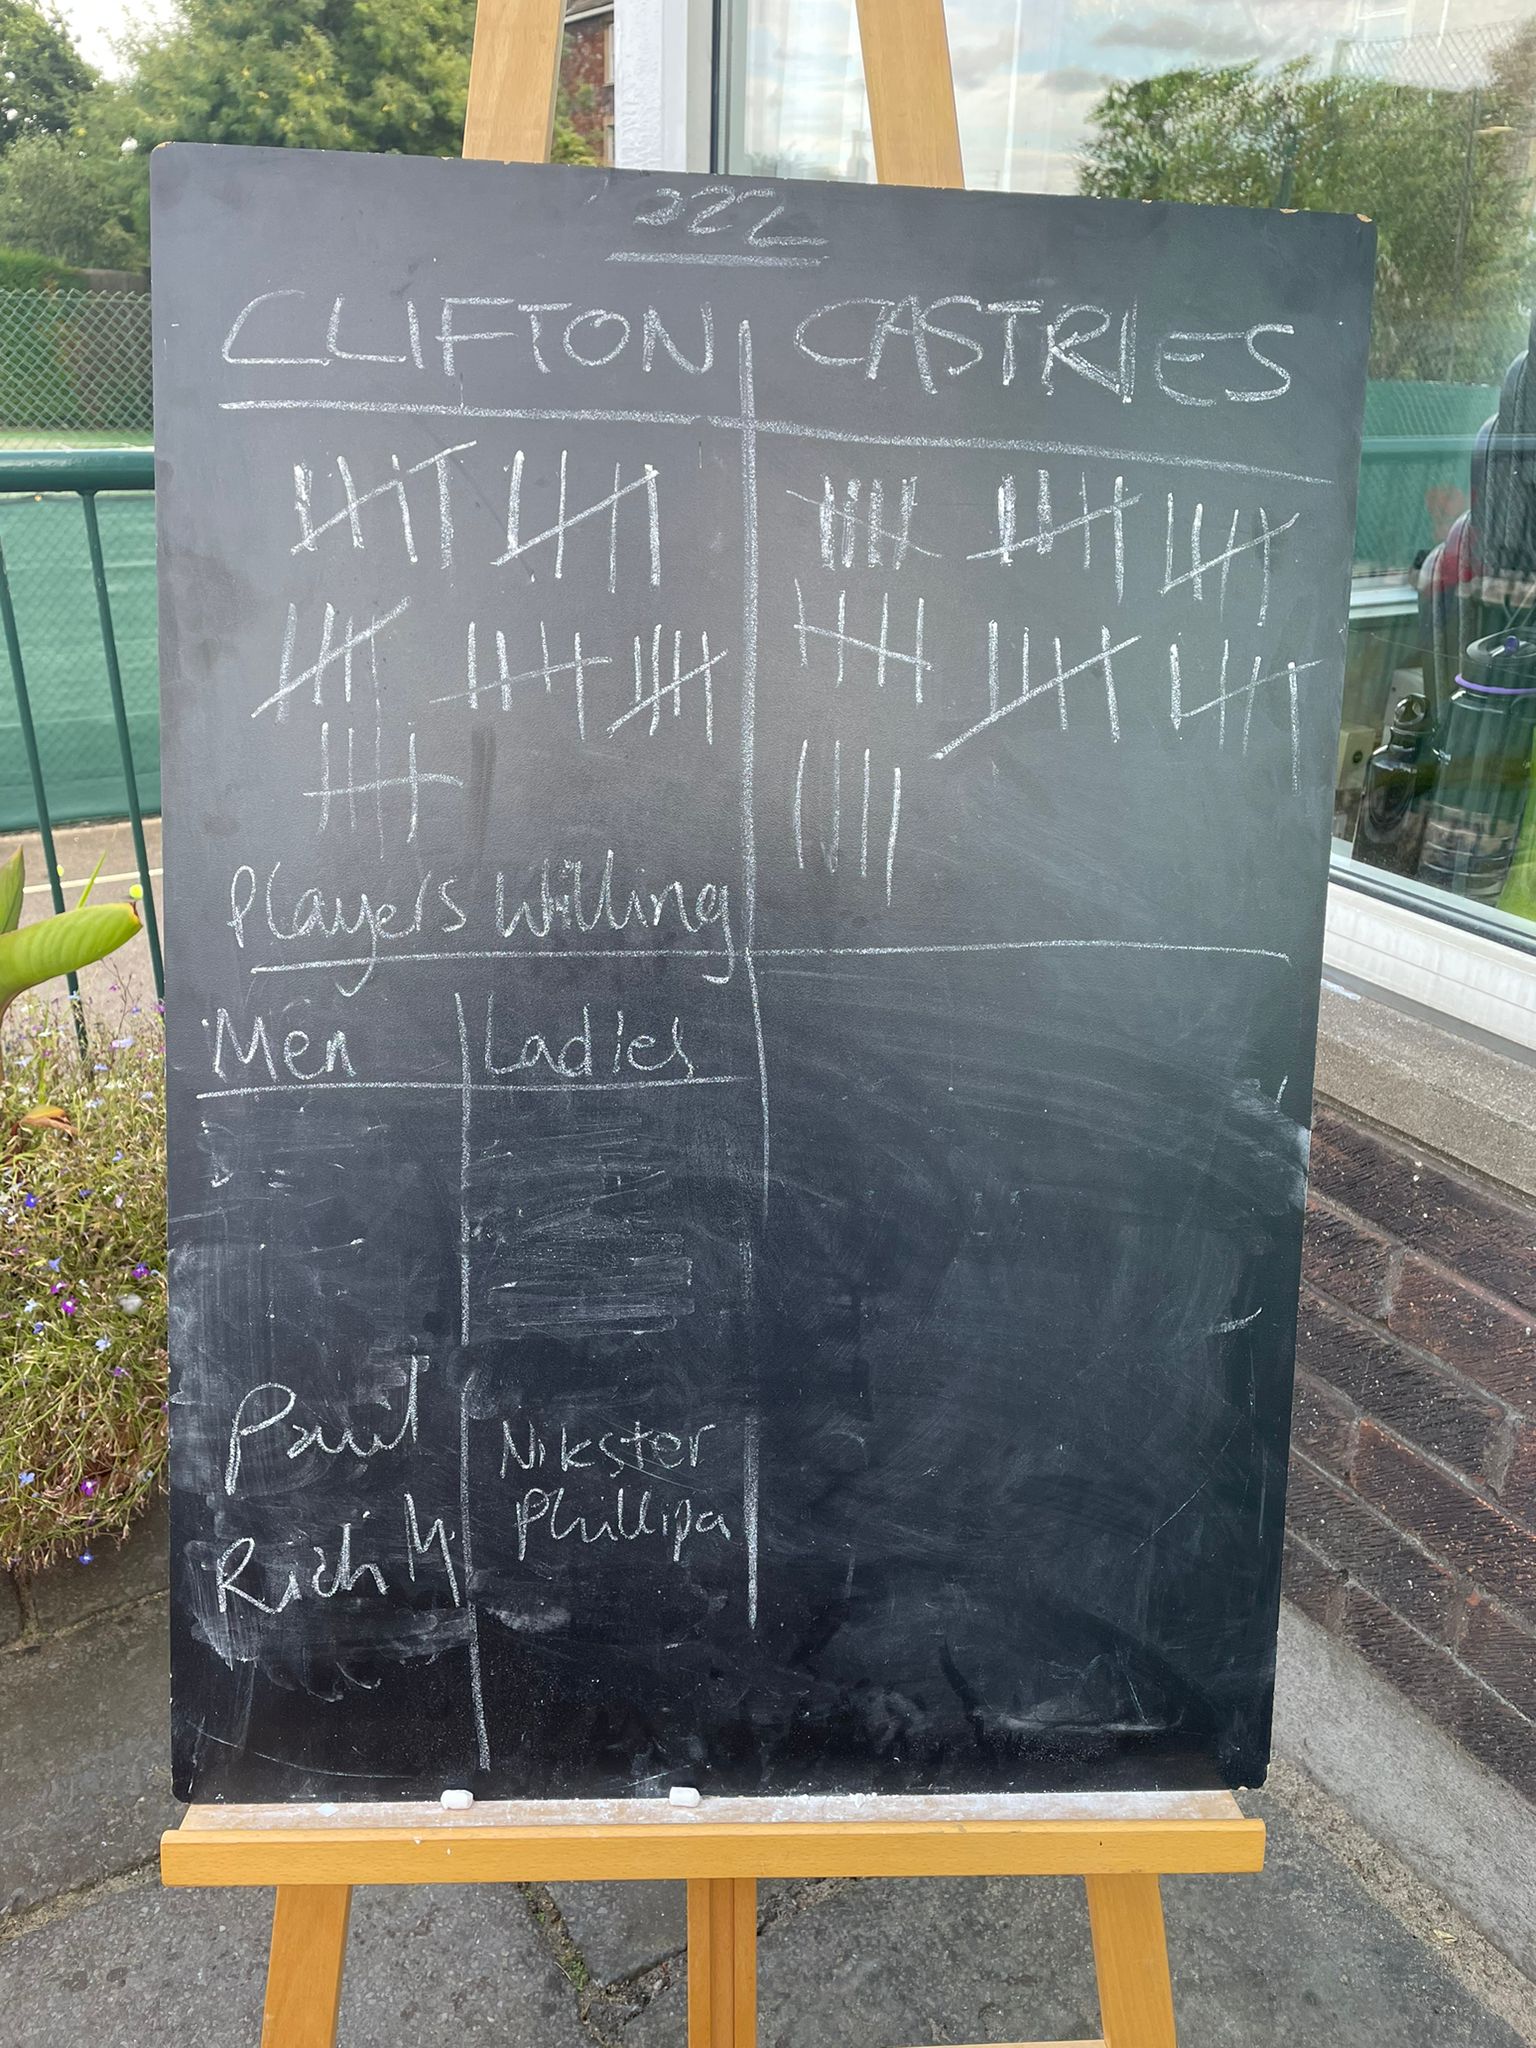 222
CLIFTON CASTRIES
Players Willing
Men Ladies
Nikster
Phillipa
Rich M.